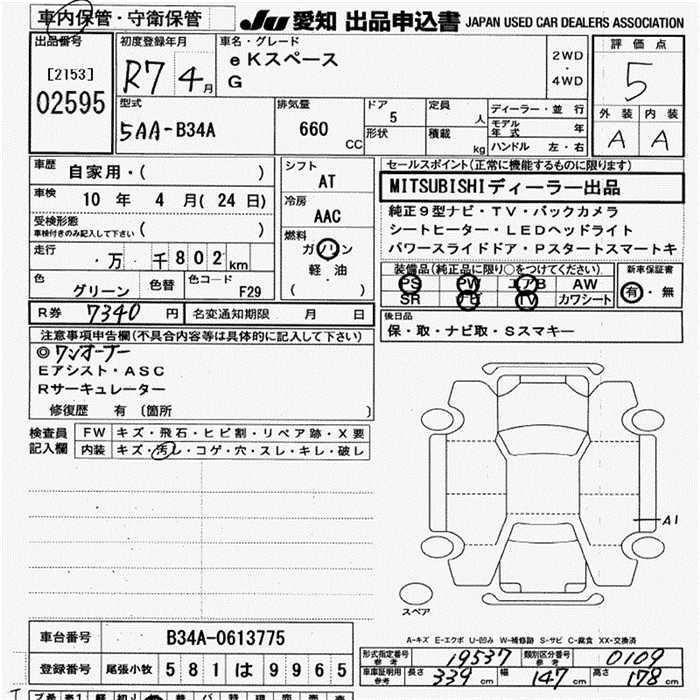 車内保管・守衛保管
JU 愛知 出品申込書 JAPAN USED CAR DEALERS ASSOCIATION
出品番号
[2153]
02595
初度登録年月
R7 4月
車名・グレード
eKスペース
G
2WD
・
4WD
評価点
5
外装 内装
A A
型式
5AA-B34A
排気量
660
CC
ドア
5
形状
定員
人
積載
kg
ディーラー・並行
モデル年式 年
ハンドル 左・右
車歴
自家用・( )
車検
10年 4月(24日)
受検形態
車検付きのみ記入して下さい ( )
走行
・万 千802km
色
グリーン
色替
色コード
F29
シフト
AT
冷房
AAC
燃料
ガソリン
軽・油
( )
セールスポイント(正常に機能するものに限ります)
MITSUBISHIディーラー出品
純正9型ナビ・TV・バックカメラ
シートヒーター・LEDヘッドライト
パワースライドドア・Pスタートスマートキ
装備品(純正品に限り○をつけてください)
PS PW エアB AW
SR ナビ TV カワシート
新車保証書
有・無
R券 7340円
名変通知期限 月 日
後日品
保・取・ナビ取・Sスマキー
注意事項申告欄(不具合内容等は具体的に記入して下さい)
◎ワンオーナー
Eアシスト・ASC
Rサーキュレーター
修復歴 有 (箇所 )
検査員記入欄
FW キズ・飛石・ヒビ割・リペア跡・X要
内装 キズ・汚レ・コゲ・穴・スレ・キレ・破レ
A1
スペア
A-キズ E-エクボ U-凹み W-補修跡 S-サビ C-腐食 XX-交換済
車台番号 B34A-0613775
登録番号 尾張小牧 581 は 9965
形式指定番号 参考 19537
類別区分番号 参考 0109
車庫証明用 参考 長さ 339cm 幅 147cm 高さ 178cm